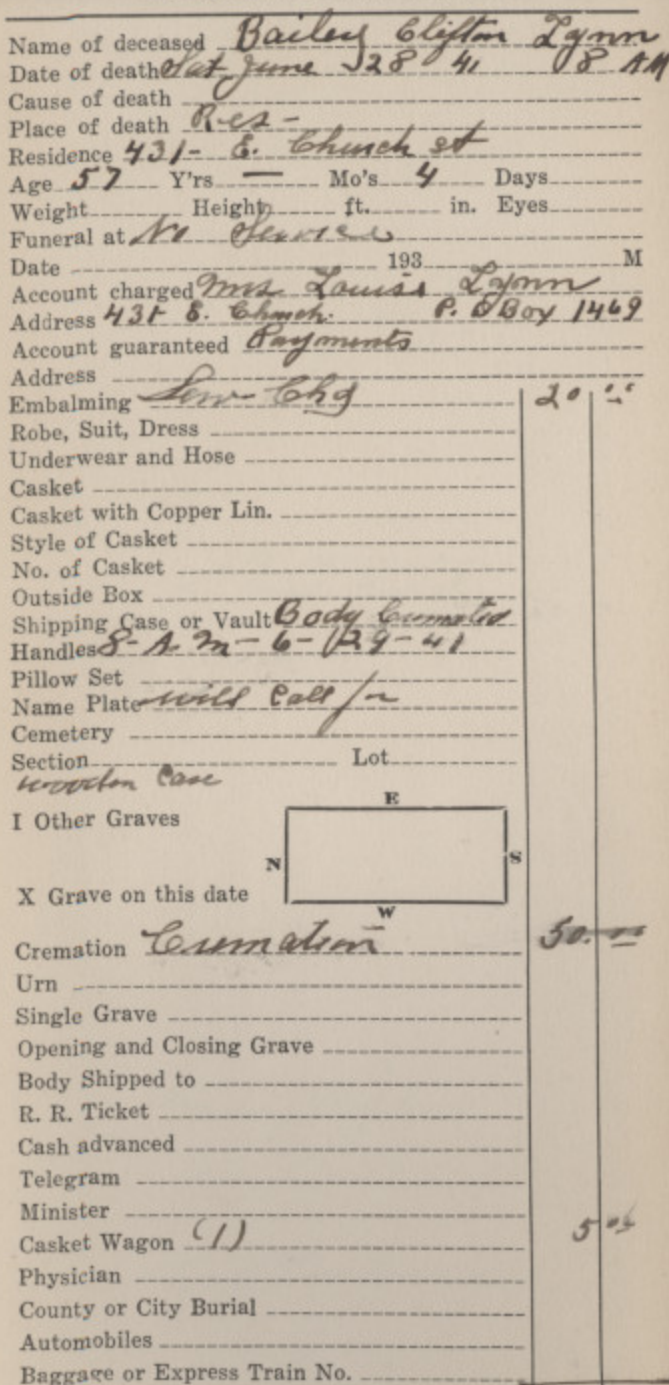 Name of deceased Bailey Clifton Lynn
Date of death Sat June 28 41 8 AM
Cause of death
Place of death Res-
Residence 431- E. Church st
Age 57 Y'rs — Mo's 4 Days
Weight Height ft. in. Eyes
Funeral at No Service
Date 193 M
Account charged Mrs Louise Lynn
Address 431 E. Church. P.O Box 1469
Account guaranteed Payments
Address
Embalming Serv Chg 20 00
Robe, Suit, Dress
Underwear and Hose
Casket
Casket with Copper Lin.
Style of Casket
No. of Casket
Outside Box
Shipping Case or Vault Body Cremated
Handles 8-A M-6-29-41
Pillow Set
Name Plate will Call for
Cemetery
Section Lot
wooden Case
E
I Other Graves
N S
X Grave on this date
W
Cremation Cremation 50.00
Urn
Single Grave
Opening and Closing Grave
Body Shipped to
R. R. Ticket
Cash advanced
Telegram
Minister
Casket Wagon (1) 5 00
Physician
County or City Burial
Automobiles
Baggage or Express Train No.